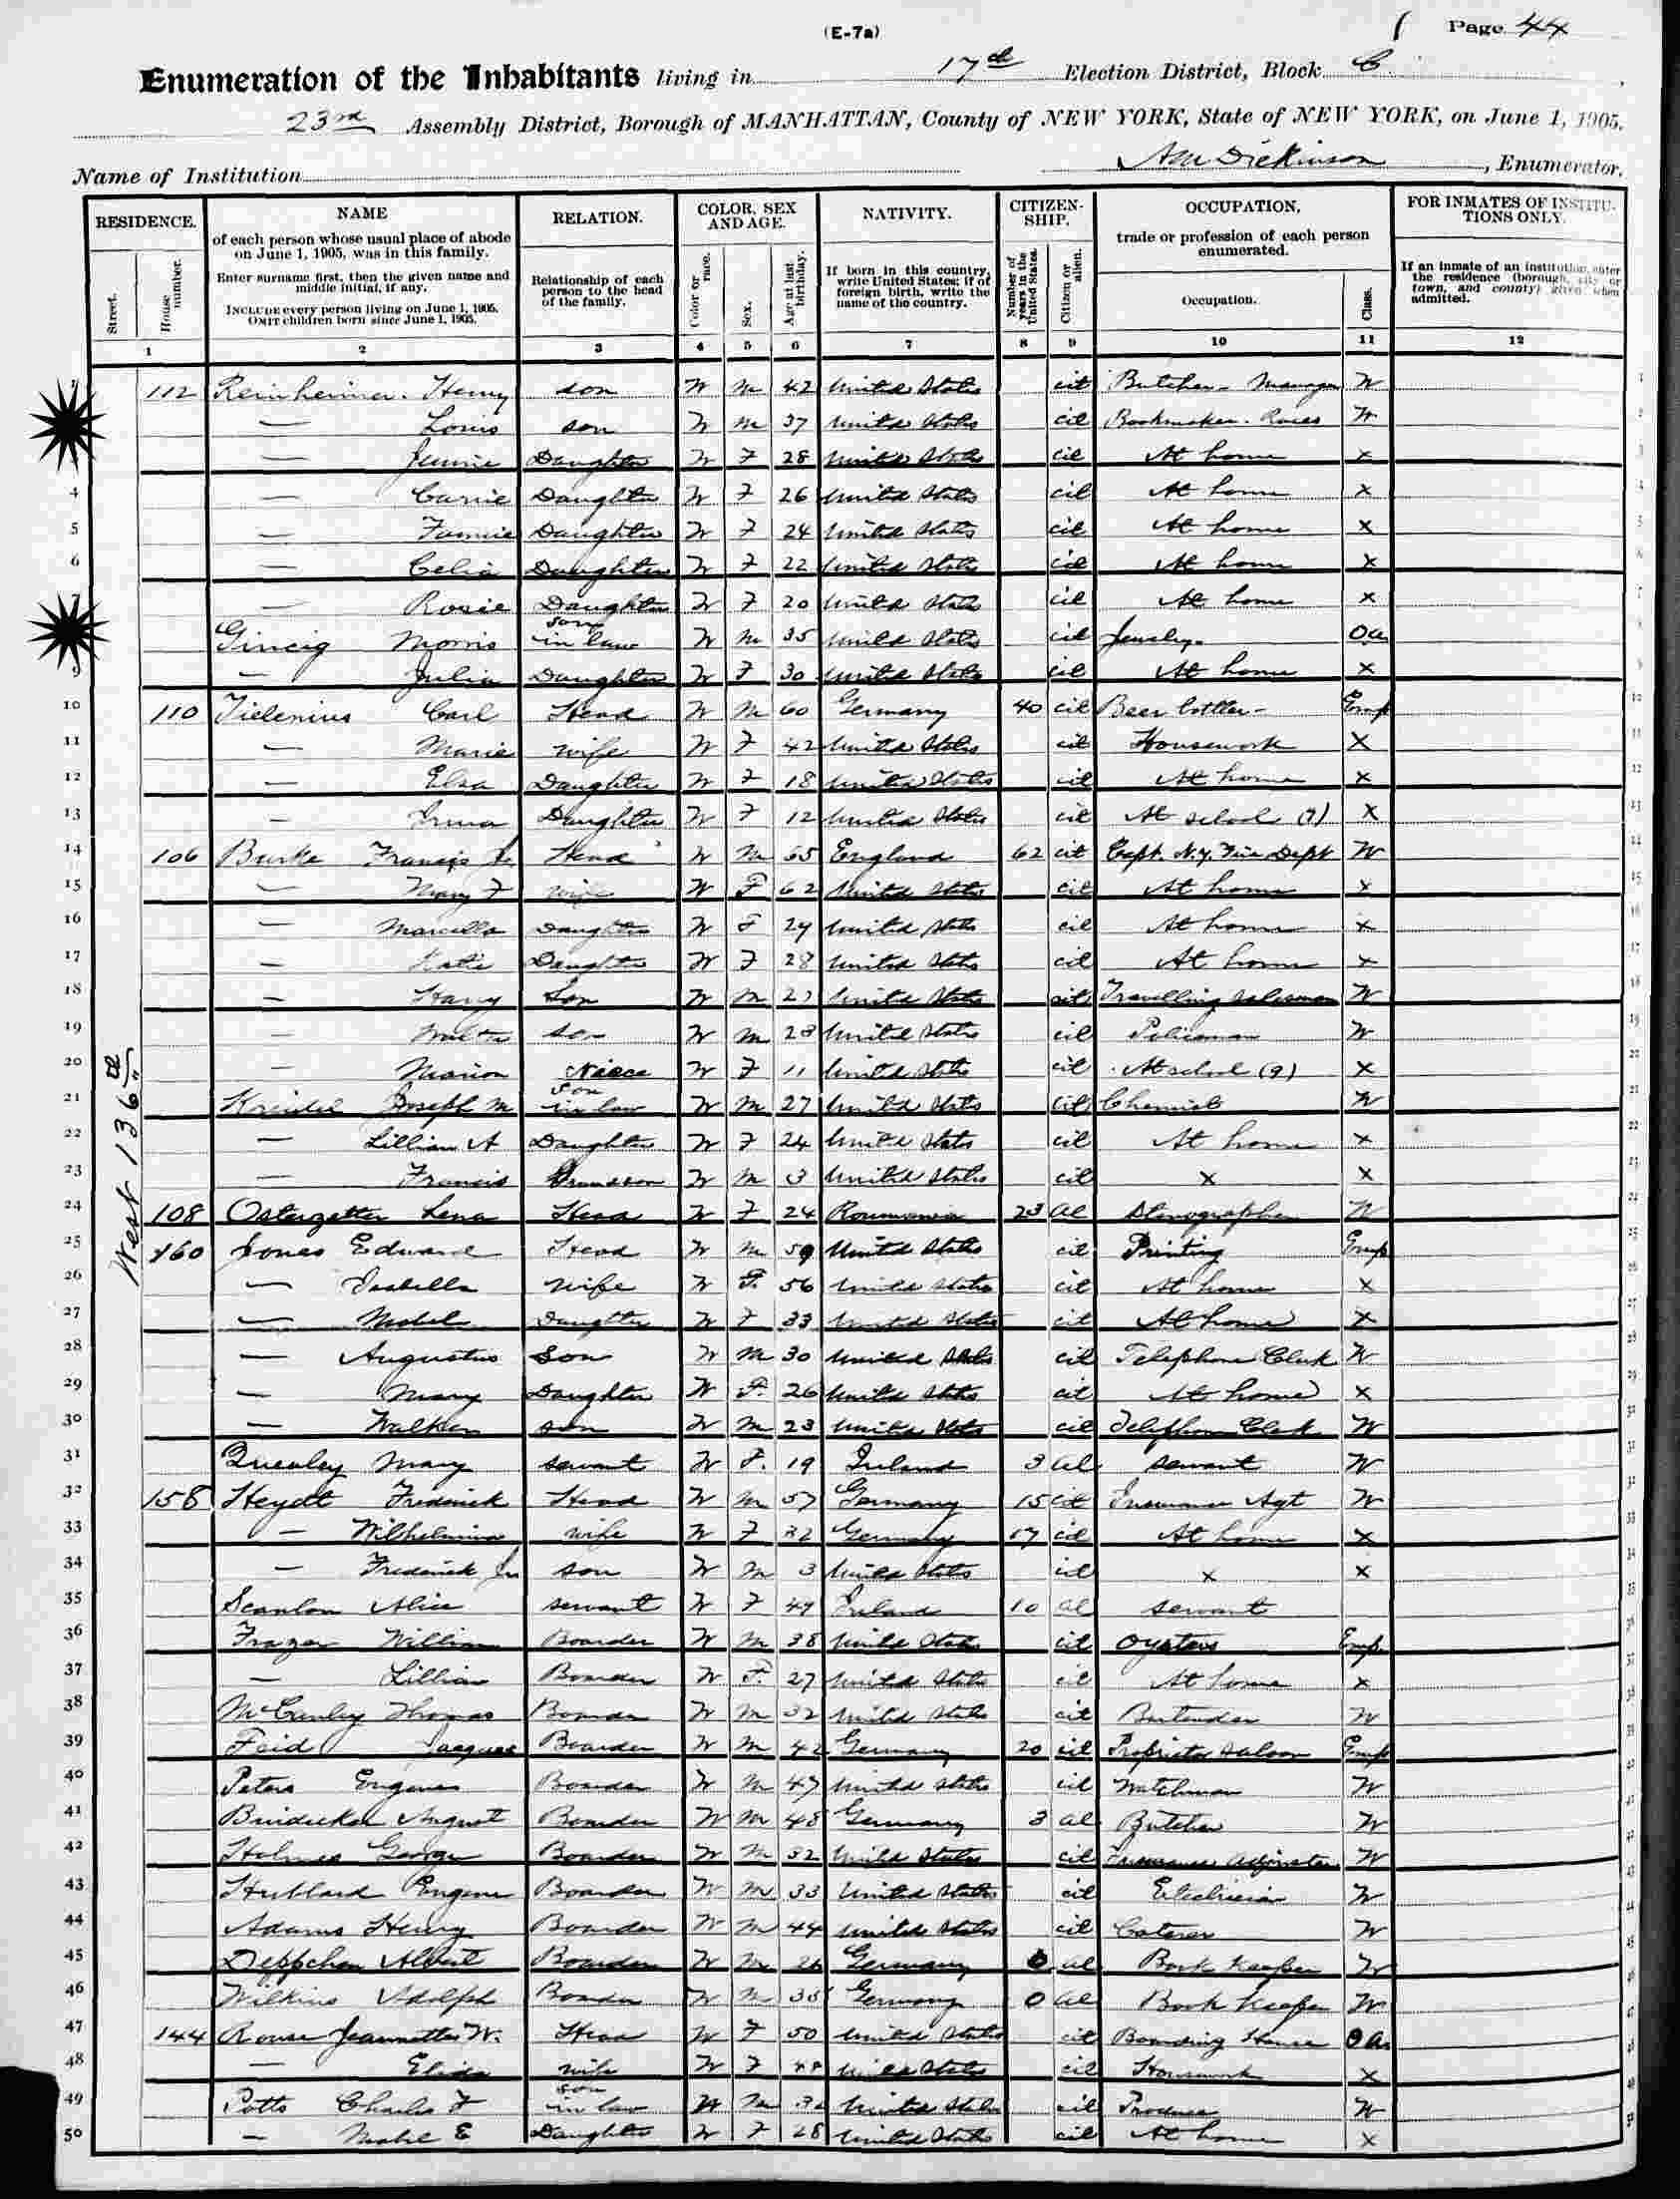 (E-7a)
Page 44
Enumeration of the Inhabitants living in 17th Election District, Block C
23rd Assembly District, Borough of MANHATTAN, County of NEW YORK, State of NEW YORK, on June 1, 1905.
Name of Institution AM Dickinson, Enumerator.
RESIDENCE. NAME RELATION. COLOR, SEX AND AGE. NATIVITY. CITIZENSHIP. OCCUPATION, FOR INMATES OF INSTITUTIONS ONLY.
Street. House number.
of each person whose usual place of abode on June 1, 1905, was in this family.
Enter surname first, then the given name and middle initial, if any.
INCLUDE every person living on June 1, 1905. OMIT children born since June 1, 1905.
Relationship of each person to the head of the family.
Color or race. Sex. Age at last birthday.
If born in this country, write United States; if of foreign birth, write the name of the country.
Number of years in the United States. Citizen or alien.
trade or profession of each person enumerated.
Occupation. Class.
If an inmate of an institution, enter the residence (borough, city or town, and county) given when admitted.
1 2 3 4 5 6 7 8 9 10 11 12
West 136th
112 Reinheimer Henry son W M 42 United States cit Butcher - Manager W
— Louis son W M 37 United States cit Bookmaker - Races W
— Jennie Daughter W F 28 United States cit At home x
4 — Carrie Daughter W F 26 United States cit At home x
5 — Fannie Daughter W F 24 United States cit At home x
6 — Celia Daughter W F 22 United States cit At home x
— Rosie Daughter W F 20 United States cit At home x
Morris son in law W M 35 United States cit Jewelry
9 — Julia Daughter W F 30 United States cit At home x
10 110 Tielenius Carl Head W M 60 Germany 40 cit Beer bottler - Emp
11 — Marie wife W F 42 United States cit Housework X
12 — Elsa Daughter W F 18 United States cit At home x
13 — Irma Daughter W F 12 United States cit At school (9) X
14 106 Burke Francis J. Head W M 65 England 62 cit Capt. N.Y. Fire Dept W
15 — Mary F wife W F 62 United States cit At home x
16 — Marcella Daughter W F 29 United States cit At home x
17 — Katie Daughter W F 28 United States cit At home x
18 — Harry Son W M United States cit Travelling salesman W
19 — Walter son W M 23 United States cit Policeman W
20 — Marion Niece W F 11 United States cit At school (9) x
21 Joseph M son in law W M 27 United States cit Chemist W
22 — Lillian A Daughter W F 24 United States cit At home x
23 — Francis Grandson W M 3 United States cit x x
24 108 Lena Head W F 24 Roumania 23 al Stenographer W
25 160 Jones Edward Head W M 59 United States cit Printing Emp
26 — Isabella wife W F. 56 United States cit At home x
27 — Mabel Daughter W F 33 United States cit At home x
28 — Augustus Son W M 30 United States cit Telephone Clerk W
29 — Mary Daughter W F. 26 United States cit At home x
30 — Walker son W M 23 United States cit Telephone Clerk W
31 Quealey Mary servant W F. 19 Ireland 3 al servant W
32 158 Heydt Frederick Head W M 57 Germany 15 cit Insurance Agt W
33 — Wilhelmina wife W F 32 Germany 17 cit At home x
34 — Frederick Jr son W M 3 United States cit x x
35 Scanlon Alice servant W F 49 Ireland 10 al servant
36 Frazer William Boarder W M 38 United States cit Oysters Emp.
37 — Lillian Boarder W F. 27 United States cit At home x
38 McCauley Thomas Boarder W M 32 United States cit Bartender W
39 Feid Jacques Boarder W M 42 Germany 20 cit Proprietor Saloon Emp
40 Peters Eugene Boarder W M 47 United States cit Watchman W
41 August Boarder W M 48 Germany 3 al Butcher W
42 Holmes George Boarder W M 32 United States cit Insurance Adjuster W
43 Hubbard Eugene Boarder W M 33 United States cit Electrician W
44 Adams Henry Boarder W M 44 United States cit Caterer W
45 Deppchen Albert Boarder W M 26 Germany 0 al Book Keeper W
46 Wilkins Adolph Boarder W M Germany 0 al Book Keeper W
47 144 Rouse Jeannette W. Head W F 50 United States cit Boarding House O A
48 — wife W F United States cit Housework x
49 Potts Charles F son in law W M United States cit Produce W
50 — Mabel E Daughter W F 28 United States cit At home x